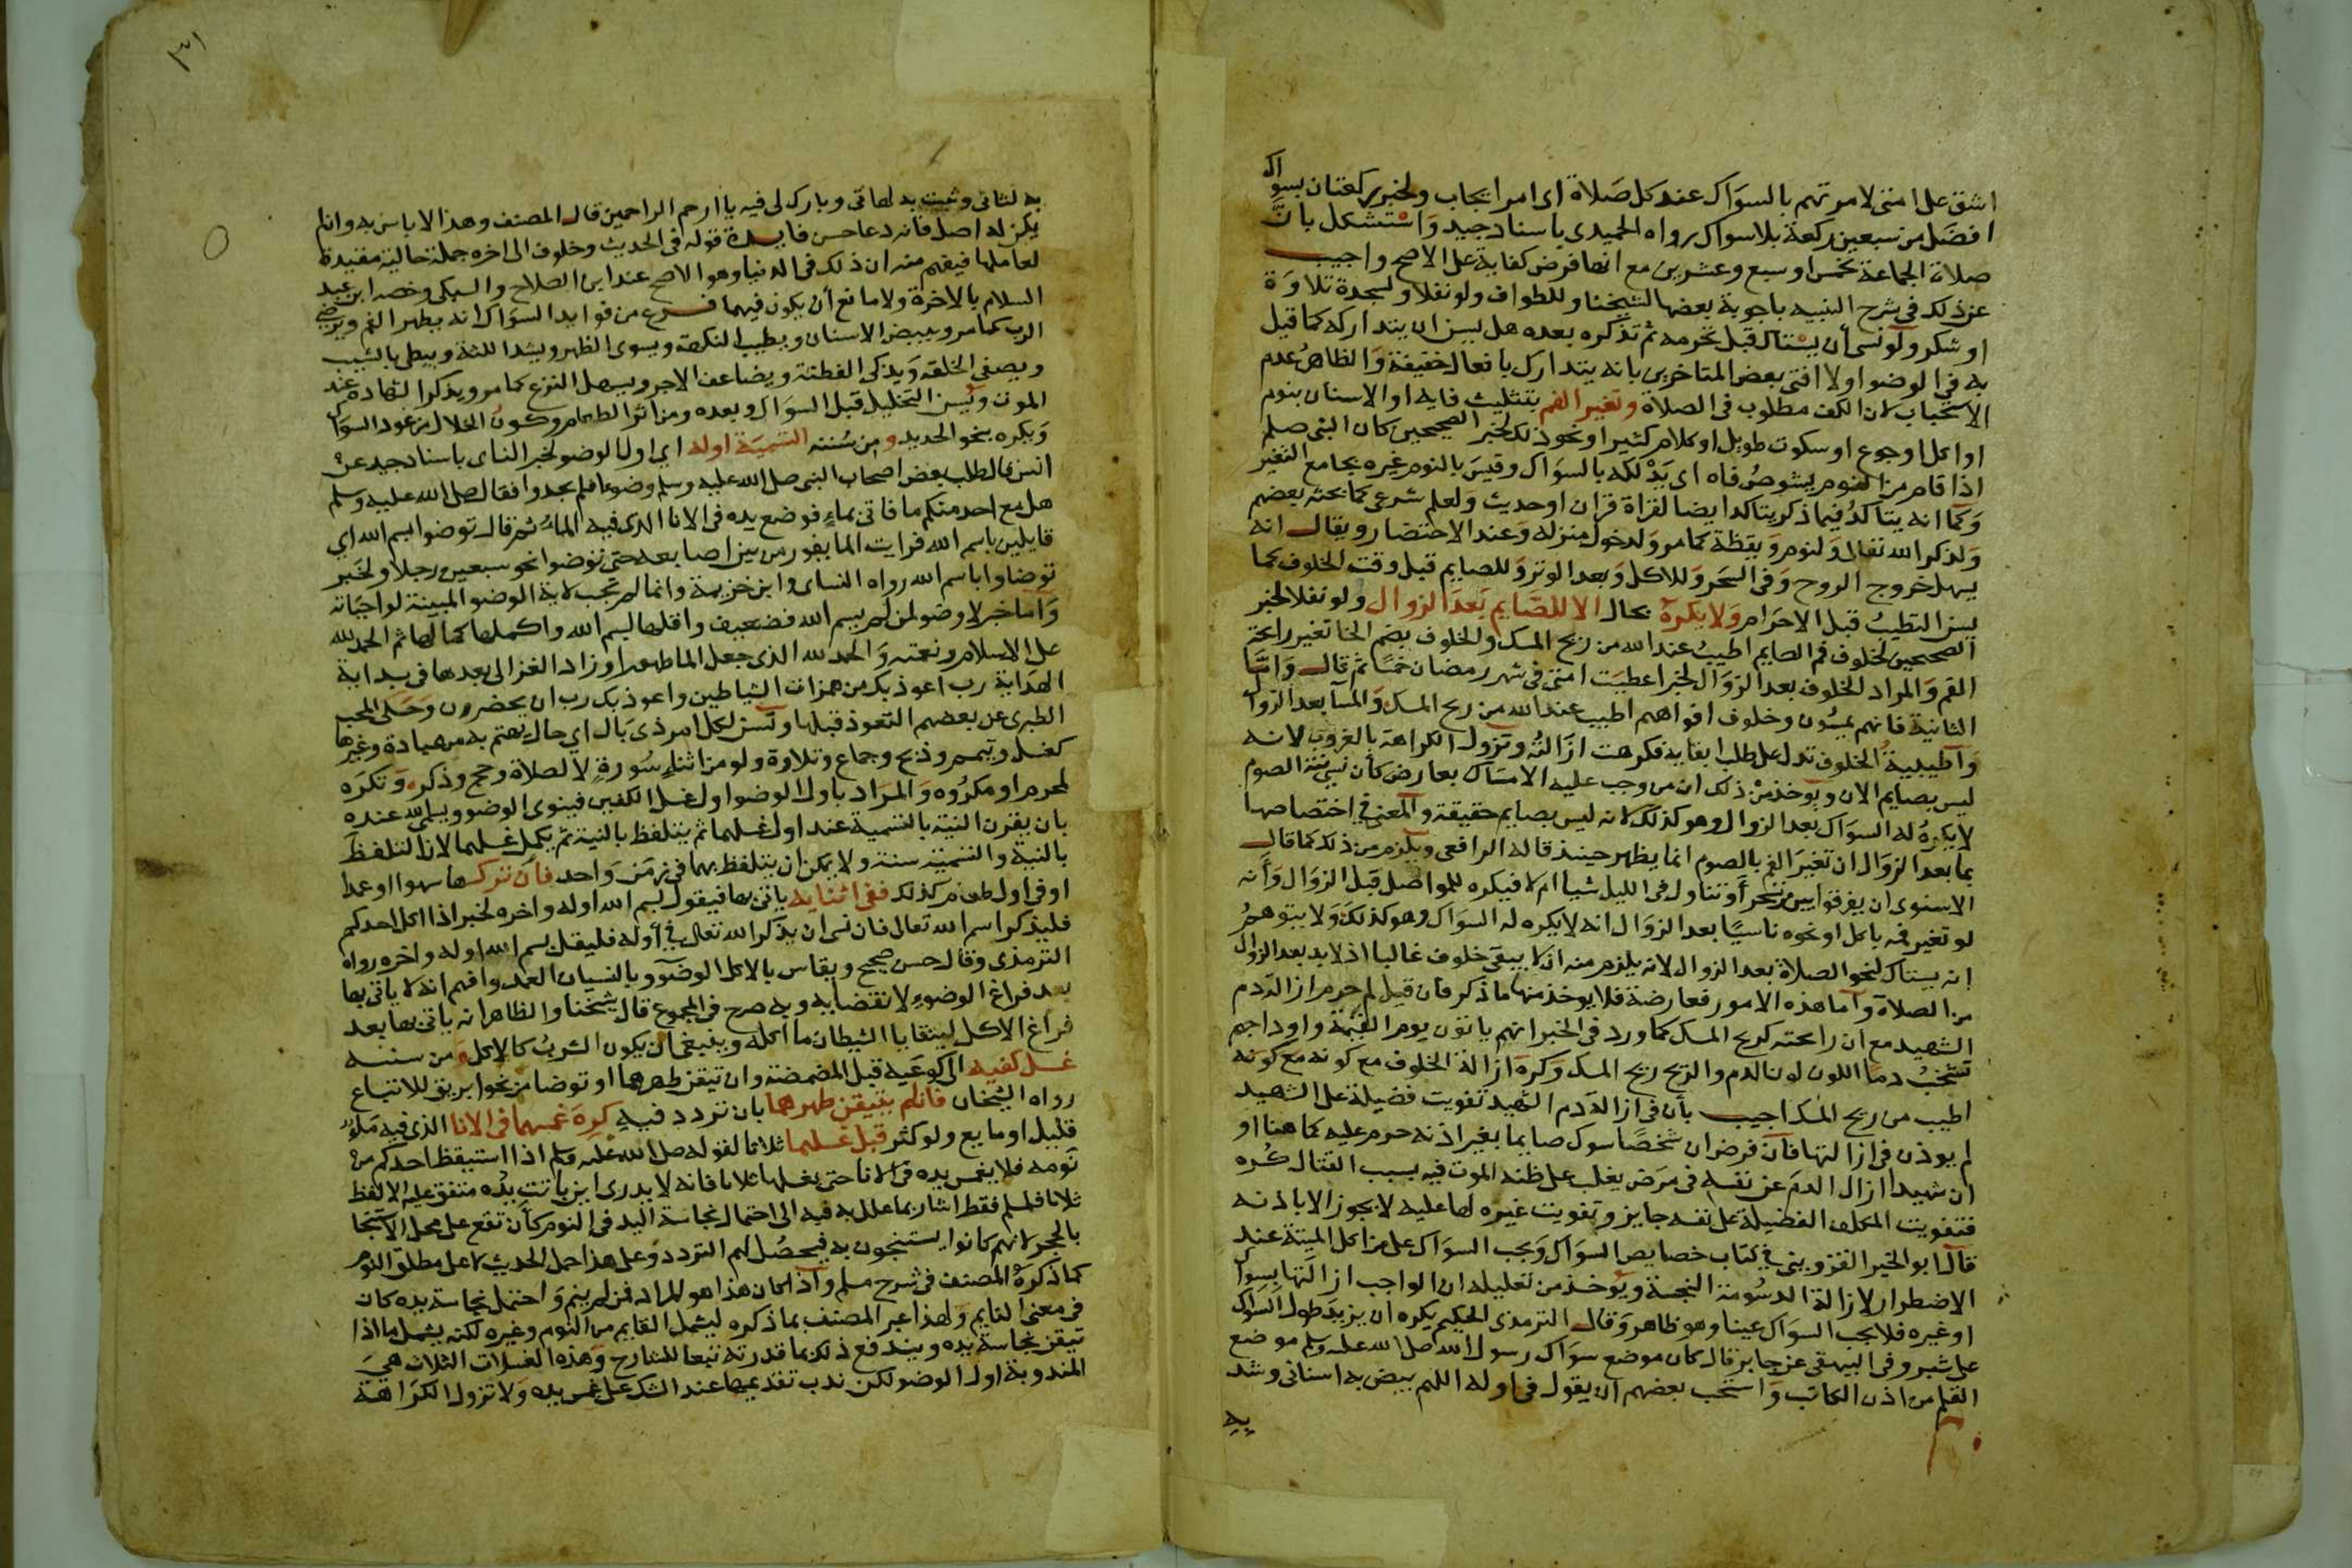 اشق على امتي لامرتهم بالسواك عند كل صلاة اي امر ايجاب ولخبر ركعتان بسواك
افضل من سبعين ركعة بلا سواك رواه الحميدي باسناد جيد واستشكل بان
صلاة الجماعة بخمس او سبع وعشرين مع انها فرض كفاية على الاصح واجيب
عن ذلك في شرح التنبيه باجوبة بعضها لشيخنا وللطواف ولو نفلا ولسجدة تلاوة
او شكر ولو نسي أن يستاك قبل تحرمه ثم تذكره بعده هل يسن ان يتداركه كما قيل
به في الوضو او لا افتى بعض المتاخرين بانه يتدارك بافعال خفيفة والظاهر عدم
الاستحباب لان الكف مطلوب في الصلاة وتغير الفم بتثليث فايه او الاسنان بنوم
او اكل او جوع او سكوت طويل او كلام كثير او نحو ذلك لخبر الصحيحين كان النبي صلم
اذا قام من النوم يشوص فاه اي يدلكه بالسواك وقيس بالنوم غيره بجامع التغير
وكما انه يتاكد فيما ذكر يتاكد ايضا لقراة قران او حديث ولعلم شرعي كما بحثه بعضهم
ولذكر الله تعالى ولنوم ويقظة كما مر ولدخول منزله وعند الاحتضار ويقال انه
يسهل خروج الروح وفي السحر وللاكل وبعد الوتر وللصايم قبل وقت الخلوف كما
يسن التطيب قبل الاحرام ولا يكره بحال الا للصايم بعد الزوال ولو نفلا لخبر
الصحيحين لخلوف فم الصايم اطيب عند الله من ريح المسك والخلوف بضم الخا تغير رايحة
الفم والمراد الخلوف بعد الزوال لخبر اعطيت امتي في شهر رمضان خمسا ثم قال واما
الثانية فانهم يمسون وخلوف افواههم اطيب عند الله من ريح المسك والمسا بعد الزوال
واطيبية الخلوف تدل على طلب ابقايه فكرهت ازالته وتزول الكراهة بالغروب لانه
ليس بصايم الان ويوخذ من ذلك ان من وجب عليه الامساك بعارض كان نسي نية الصوم
لا يكره له السواك بعد الزوال وهو كذلك لانه ليس بصايم حقيقة والمعنى في اختصاصها
بما بعد الزوال ان تغير الفم بالصوم انما يظهر حينئذ قاله الرافعي ويلزم من ذلك كما قال
الاسنوي ان يفرقوا بين من تسحر أو تناول في الليل شيا ام لا فيكره للمواصل قبل الزوال وأنه
لو تغير فمه باكل او نحوه ناسيا بعد الزوال انه لا يكره له السواك وهو كذلك ولا يتوهم
انه يستاك لنحو الصلاة بعد الزوال لانه يلزم منه ان لا يبقى خلوف غالبا اذ لا بد بعد الزوال
من الصلاة واما هذه الامور فعارضة فلا يوخذ منها ما ذكر فان قيل لم حرم ازالة دم
الشهيد مع ان رايحته كريح المسك كما ورد في الخبر انهم ياتون يوم القيمة واوداجهم
تشخب دما اللون لون الدم والريح ريح المسك وكره ازالة الخلوف مع كونه مع كونه
اطيب من ريح المسك اجيب بأن في ازالة دم الشهيد تفويت فضيلة على الشهيد
لم يوذن في ازالتها فان فرض ان شخصا سوك صايما بغير اذنه حرم عليه كما هنا او
ان شهيدا ازال الدم عن نفسه في مرض يغلب على ظنه الموت فيه بسبب القتال كره
فتفويت المكلف الفضيلة على نفسه جايز وتفويت غيره لها عليه لا يجوز الا باذنه
قال ابو الخير القزويني في كتاب خصايص السواك ويجب السواك على من اكل الميتة عند
الاضطرار لازالة الدسومة النجسة ويوخذ من تعليله ان الواجب ازالتها بسواك
او غيره فلا يجب السواك عينا وهو ظاهر وقال الترمذي الحكيم يكره ان يزيد طول السواك
على شبر وفي البيهقي عن جابر قال كان موضع سواك رسول الله صلى الله عليه وسلم موضع
القلم من اذن الكاتب واستحب بعضهم ان يقول في اوله اللهم بيض به اسناني وشد
به
١٣١
به لثاتي وثبت به لهاتي وبارك لي فيه يا ارحم الراحمين قال المصنف وهذا لا باس به وان لم
يكن له اصل فانه دعا حسن فايدة قوله في الحديث وخلوف الى اخره جملة حالية مقيدة
لعاملها فيفهم منه ان ذلك في الدنيا وهو الاصح عند ابن الصلاح والسبكي وخصه ابن عبد
السلام بالاخرة ولا مانع أن يكون فيهما فرع من فوايد السواك انه يطهر الفم ويرضي
الرب كما مر ويبيض الاسنان ويطيب النكهة ويسوي الظهر ويشد اللثة ويبطي بالشيب
ويصفي الخلقه ويذكي الفطنة ويضاعف الاجر ويسهل النزع كما مر ويذكر الشهادة عند
الموت ويسن التخليل قبل السواك وبعده ومن اثر الطعام وكون الخلال من عود السواك
ويكره بنحو الحديد ومن سننه التسمية اوله اي اول الوضو لخبر النساي باسناد جيد عن
انس قال طلب بعض اصحاب النبي صلى الله عليه وسلم وضوءا فلم يجدوا فقال صلى الله عليه وسلم
هل مع احد منكم ما فاتي بماء فوضع يده في الانا الذي فيه الماء ثم قال توضوا بسم الله اي
قايلين باسم الله فرايت الما يفور من بين اصابعه حتى توضوا نحو سبعين رجلا ولخبر
توضاوا باسم الله رواه النساي وابن خزيمة وانما لم تجب لاية الوضو المبينة لواجباته
واما خبر لا وضو لمن لم يسم الله فضعيف واقلها بسم الله واكملها كمالها ثم الحمد لله
على الاسلام ونعمته والحمد لله الذي جعل الما طهورا وزاد الغزالي بعدها في بداية
الهداية رب اعوذ بك من همزات الشياطين واعوذ بك رب ان يحضرون وحكى المحب
الطبري عن بعضهم التعوذ قبلها وتسن لكل امر ذي بال اي حال يهتم به من عبادة وغيرها
كغسل وتيمم وذبح وجماع وتلاوة ولو من اثناء سورة لا لصلاة وحج وذكر وتكره
لمحرم او مكروه والمراد باول الوضو اول غسل الكفين فينوي الوضو ويسمي الله عنده
بان يقرن النية بالتسمية عند اول غسلهما ثم يتلفظ بالنية ثم يكمل غسلهما لان التلفظ
بالنية والتسمية سنة ولا يمكن ان يتلفظ بهما في زمن واحد فان تركها سهوا او عمدا
او في اول طعام كذلك ففي اثنايه ياتي بها فيقول بسم الله اوله واخره لخبر اذا اكل احدكم
فليذكر اسم الله تعالى فان نسي ان يذكر الله تعالى في أوله فليقل بسم الله اوله واخره رواه
الترمذي وقال حسن صحيح ويقاس بالاكل الوضو وبالنسيان العمد وافهم انه لا ياتي بها
بعد فراغ الوضوء لانقضايه وبه صرح في المجموع قال شيخنا والظاهر انه ياتي بها بعد
فراغ الاكل ليتقايا الشيطان ما اكله وينبغي ان يكون الشرب كالاكل ومن سننه
غسل كفيه الى كوعيه قبل المضمضة وان تيقن طهرهما او توضا من نحو ابريق للاتباع
رواه الشيخان فان لم يتيقن طهرهما بان تردد فيه كره غمسهما في الانا الذي فيه ماء
قليل او مايع ولو كثر قبل غسلهما ثلاثا لقوله صلى الله عليه وسلم اذا استيقظ احدكم من
نومه فلا يغمس يده في الانا حتى يغسلها ثلاثا فانه لا يدري اين باتت يده متفق عليه الا لفظ
ثلاثا فلمسلم فقط اشار بما علل به فيه الى احتمال نجاسة اليد في النوم كأن تقع على محل الاستنجا
بالحجر لانهم كانوا يستنجون به فيحصل لهم التردد وعلى هذا حمل الحديث لا على مطلق النوم
كما ذكره المصنف في شرح مسلم واذا كان هذا هو المراد فمن لم ينم واحتمل نجاسة يده كان
في معنى النايم ولهذا عبر المصنف بما ذكره ليشمل القايم من النوم وغيره لكنه يشمل ما اذا
تيقن نجاسة يده ويندفع ذلك بما قدرته تبعا للشارح وهذه الغسلات الثلاث هي
المندوبة اول الوضو لكن ندب تقديمها عند الشك على غمس يده ولا تزول الكراهة